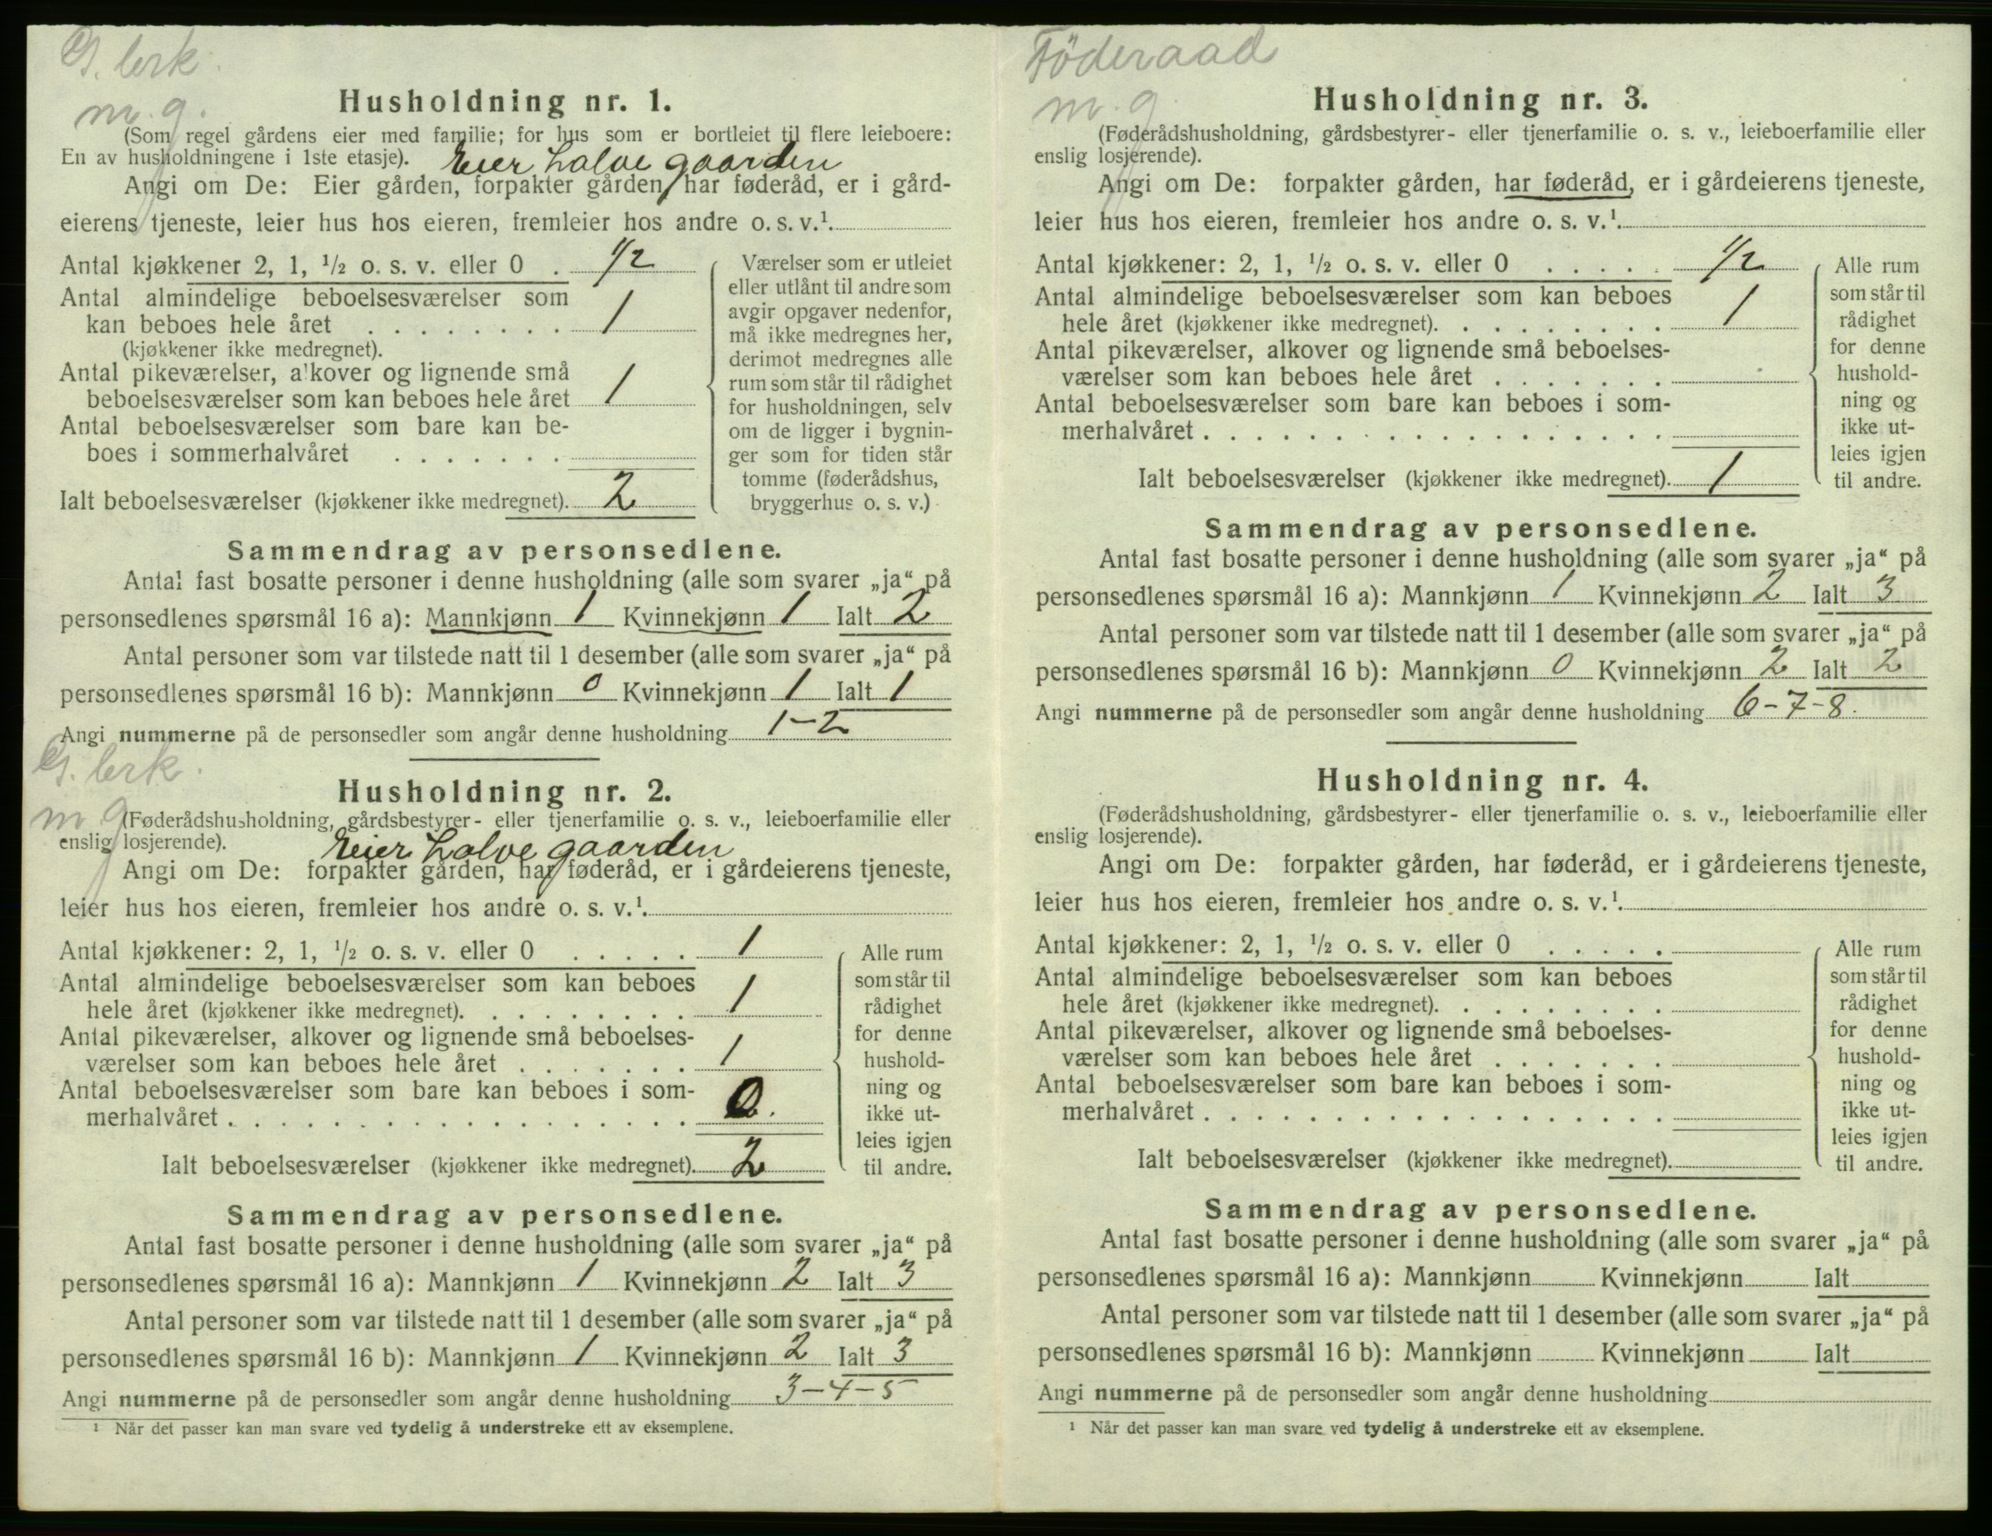 G. brk.
m. g.
Husholdning nr. 1.
(Som regel gårdens eier med familie; for hus som er bortleiet til flere leieboere:
En av husholdningene i 1ste etasje).
Eier halve gaarden
Angi om De: Eier gården, forpakter gården, har føderåd, er i gård-
eierens tjeneste, leier hus hos eieren, fremleier hos andre o. s. v.¹.
Antal kjøkkener 2, 1, ½ o. s. v. eller 0 . 1/2
Antal almindelige beboelsesværelser som
kan beboes hele året . . . . . . . . 1
(kjøkkener ikke medregnet).
Antal pikeværelser, alkover og lignende små
beboelsesværelser som kan beboes hele året 1
Antal beboelsesværelser som bare kan be-
boes i sommerhalvåret . . . . . . .
Ialt beboelsesværelser (kjøkkener ikke medregnet). 2
Værelser som er utleiet
eller utlånt til andre som
avgir opgaver nedenfor,
må ikke medregnes her,
derimot medregnes alle
rum som står til rådighet
for husholdningen, selv
om de ligger i bygnin-
ger som for tiden står
tomme (føderådshus,
bryggerhus o. s. v.)
Sammendrag av personsedlene.
Antal fast bosatte personer i denne husholdning (alle som svarer „ja“ på
personsedlenes spørsmål 16 a): Mannkjønn 1 Kvinnekjønn 1 Ialt 2
Antal personer som var tilstede natt til 1 desember (alle som svarer „ja“ på
personsedlenes spørsmål 16 b): Mannkjønn 0 Kvinnekjønn 1 Ialt 1
Angi nummerne på de personsedler som angår denne husholdning 1-2
G. brk.
m. g.
Husholdning nr. 2.
(Føderådshusholdning, gårdsbestyrer- eller tjenerfamilie o. s. v., leieboerfamilie eller
enslig losjerende).
Eier halve gaarden
Angi om De: forpakter gården, har føderåd, er i gårdeierens tjeneste,
leier hus hos eieren, fremleier hos andre o. s. v.¹.
Antal kjøkkener: 2, 1, ½ o. s. v. eller 0 . . . . . 1
Antal almindelige beboelsesværelser som kan beboes
hele året (kjøkkener ikke medregnet). . . . . . . . . 1
Antal pikeværelser, alkover og lignende små beboelses-
værelser som kan beboes hele året . . . . . . . 1
Antal beboelsesværelser som bare kan beboes i som-
merhalvåret . . . . . . . . . . . . . . . . . . 0.
Ialt beboelsesværelser (kjøkkener ikke medregnet). 2
Alle rum
som står til
rådighet
for denne
hushold-
ning og
ikke ut-
leies igjen
til andre.
Sammendrag av personsedlene.
Antal fast bosatte personer i denne husholdning (alle som svarer „ja“ på
personsedlenes spørsmål 16 a): Mannkjønn 1 Kvinnekjønn 2 Ialt 3
Antal personer som var tilstede natt til 1 desember (alle som svarer „ja“ på
personsedlenes spørsmål 16 b): Mannkjønn 1 Kvinnekjønn 2 Ialt 3
Angi nummerne på de personsedler som angår denne husholdning 3-4-5
¹ Når det passer kan man svare ved tydelig å understreke ett av eksemplene.
Föderaad
m. g.
Husholdning nr. 3.
(Føderådshusholdning, gårdsbestyrer- eller tjenerfamilie o. s. v., leieboerfamilie eller
enslig losjerende).
Angi om De: forpakter gården, har føderåd, er i gårdeierens tjeneste,
leier hus hos eieren, fremleier hos andre o. s. v.¹.
Antal kjøkkener: 2, 1, ½ o. s. v. eller 0 . . . . . 1/2
Antal almindelige beboelsesværelser som kan beboes
hele året (kjøkkener ikke medregnet). . . . . . . . . 1
Antal pikeværelser, alkover og lignende små beboelses-
værelser som kan beboes hele året . . . . . . .
Antal beboelsesværelser som bare kan beboes i som-
merhalvåret . . . . . . . . . . . . . . . . . .
Ialt beboelsesværelser (kjøkkener ikke medregnet). 1
Alle rum
som står til
rådighet
for denne
hushold-
ning og
ikke ut-
leies igjen
til andre.
Sammendrag av personsedlene.
Antal fast bosatte personer i denne husholdning (alle som svarer „ja“ på
personsedlenes spørsmål 16 a): Mannkjønn 1 Kvinnekjønn 2 Ialt 3
Antal personer som var tilstede natt til 1 desember (alle som svarer „ja“ på
personsedlenes spørsmål 16 b): Mannkjønn 0 Kvinnekjønn 2 Ialt 2
Angi nummerne på de personsedler som angår denne husholdning 6-7-8.
Husholdning nr. 4.
(Føderådshusholdning, gårdsbestyrer- eller tjenerfamilie o. s. v., leieboerfamilie eller
enslig losjerende).
Angi om De: forpakter gården, har føderåd, er i gårdeierens tjeneste,
leier hus hos eieren, fremleier hos andre o. s. v.¹.
Antal kjøkkener: 2, 1, ½ o. s. v. eller 0 . . . . .
Antal almindelige beboelsesværelser som kan beboes
hele året (kjøkkener ikke medregnet). . . . . . . . .
Antal pikeværelser, alkover og lignende små beboelses-
værelser som kan beboes hele året . . . . . . .
Antal beboelsesværelser som bare kan beboes i som-
merhalvåret . . . . . . . . . . . . . . . . . .
Ialt beboelsesværelser (kjøkkener ikke medregnet).
Alle rum
som står til
rådighet
for denne
hushold-
ning og
ikke ut-
leies igjen
til andre.
Sammendrag av personsedlene.
Antal fast bosatte personer i denne husholdning (alle som svarer „ja“ på
personsedlenes spørsmål 16 a): Mannkjønn Kvinnekjønn Ialt
Antal personer som var tilstede natt til 1 desember (alle som svarer „ja“ på
personsedlenes spørsmål 16 b): Mannkjønn Kvinnekjønn Ialt
Angi nummerne på de personsedler som angår denne husholdning
¹ Når det passer kan man svare ved tydelig å understreke ett av eksemplene.